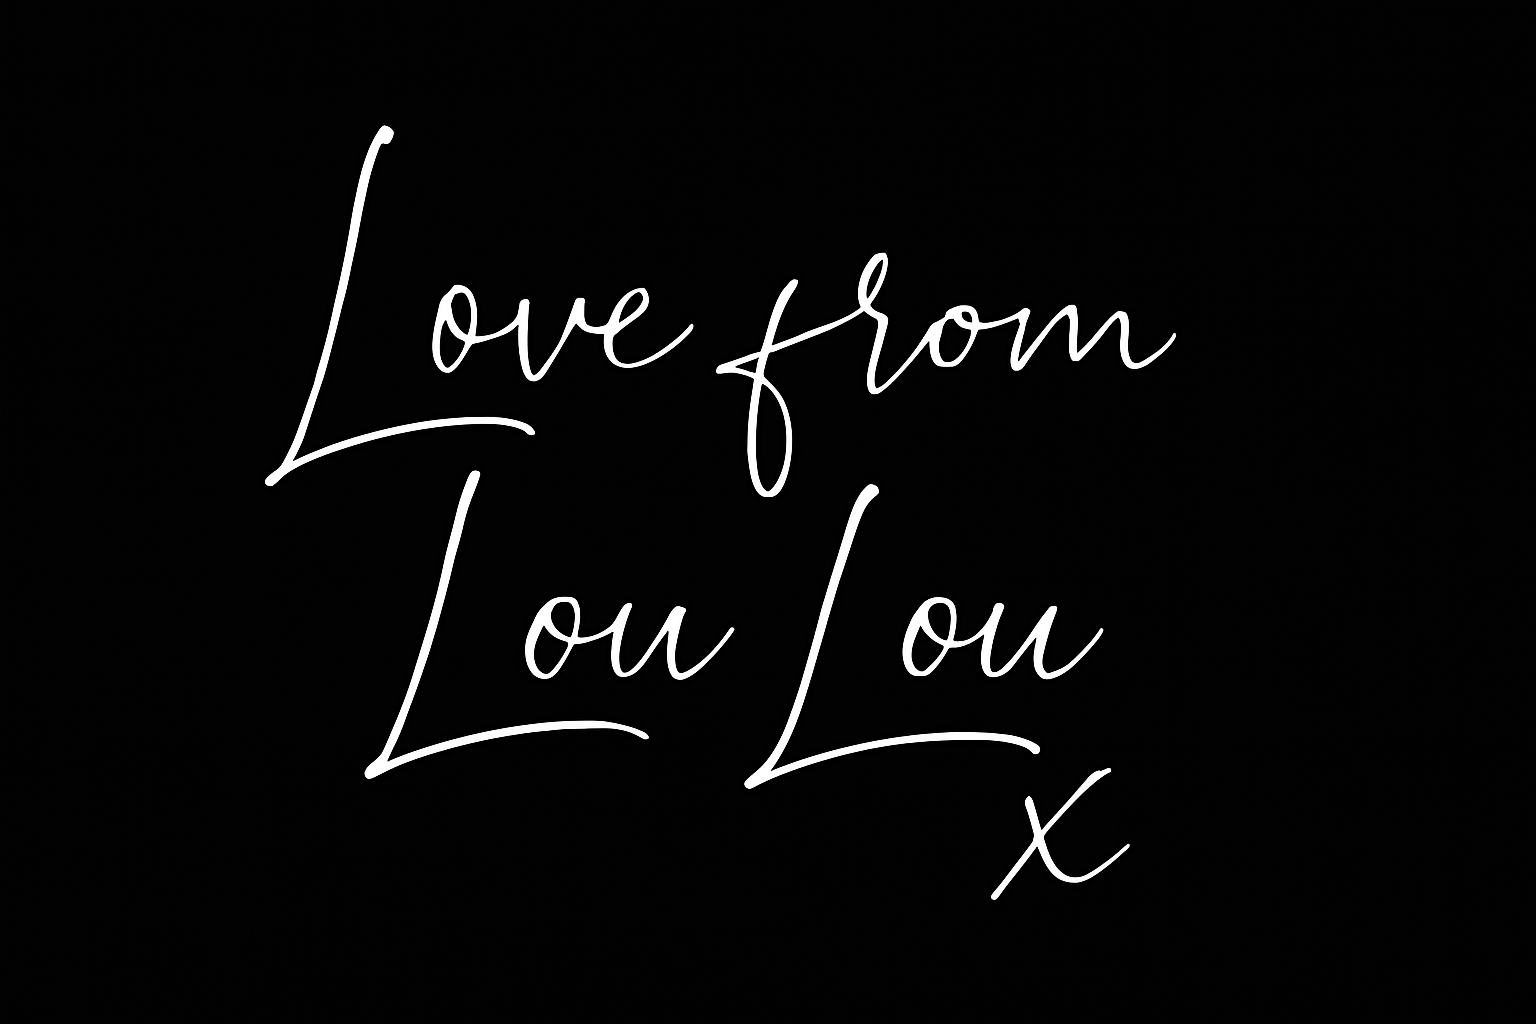 Love from
Lou Lou
x